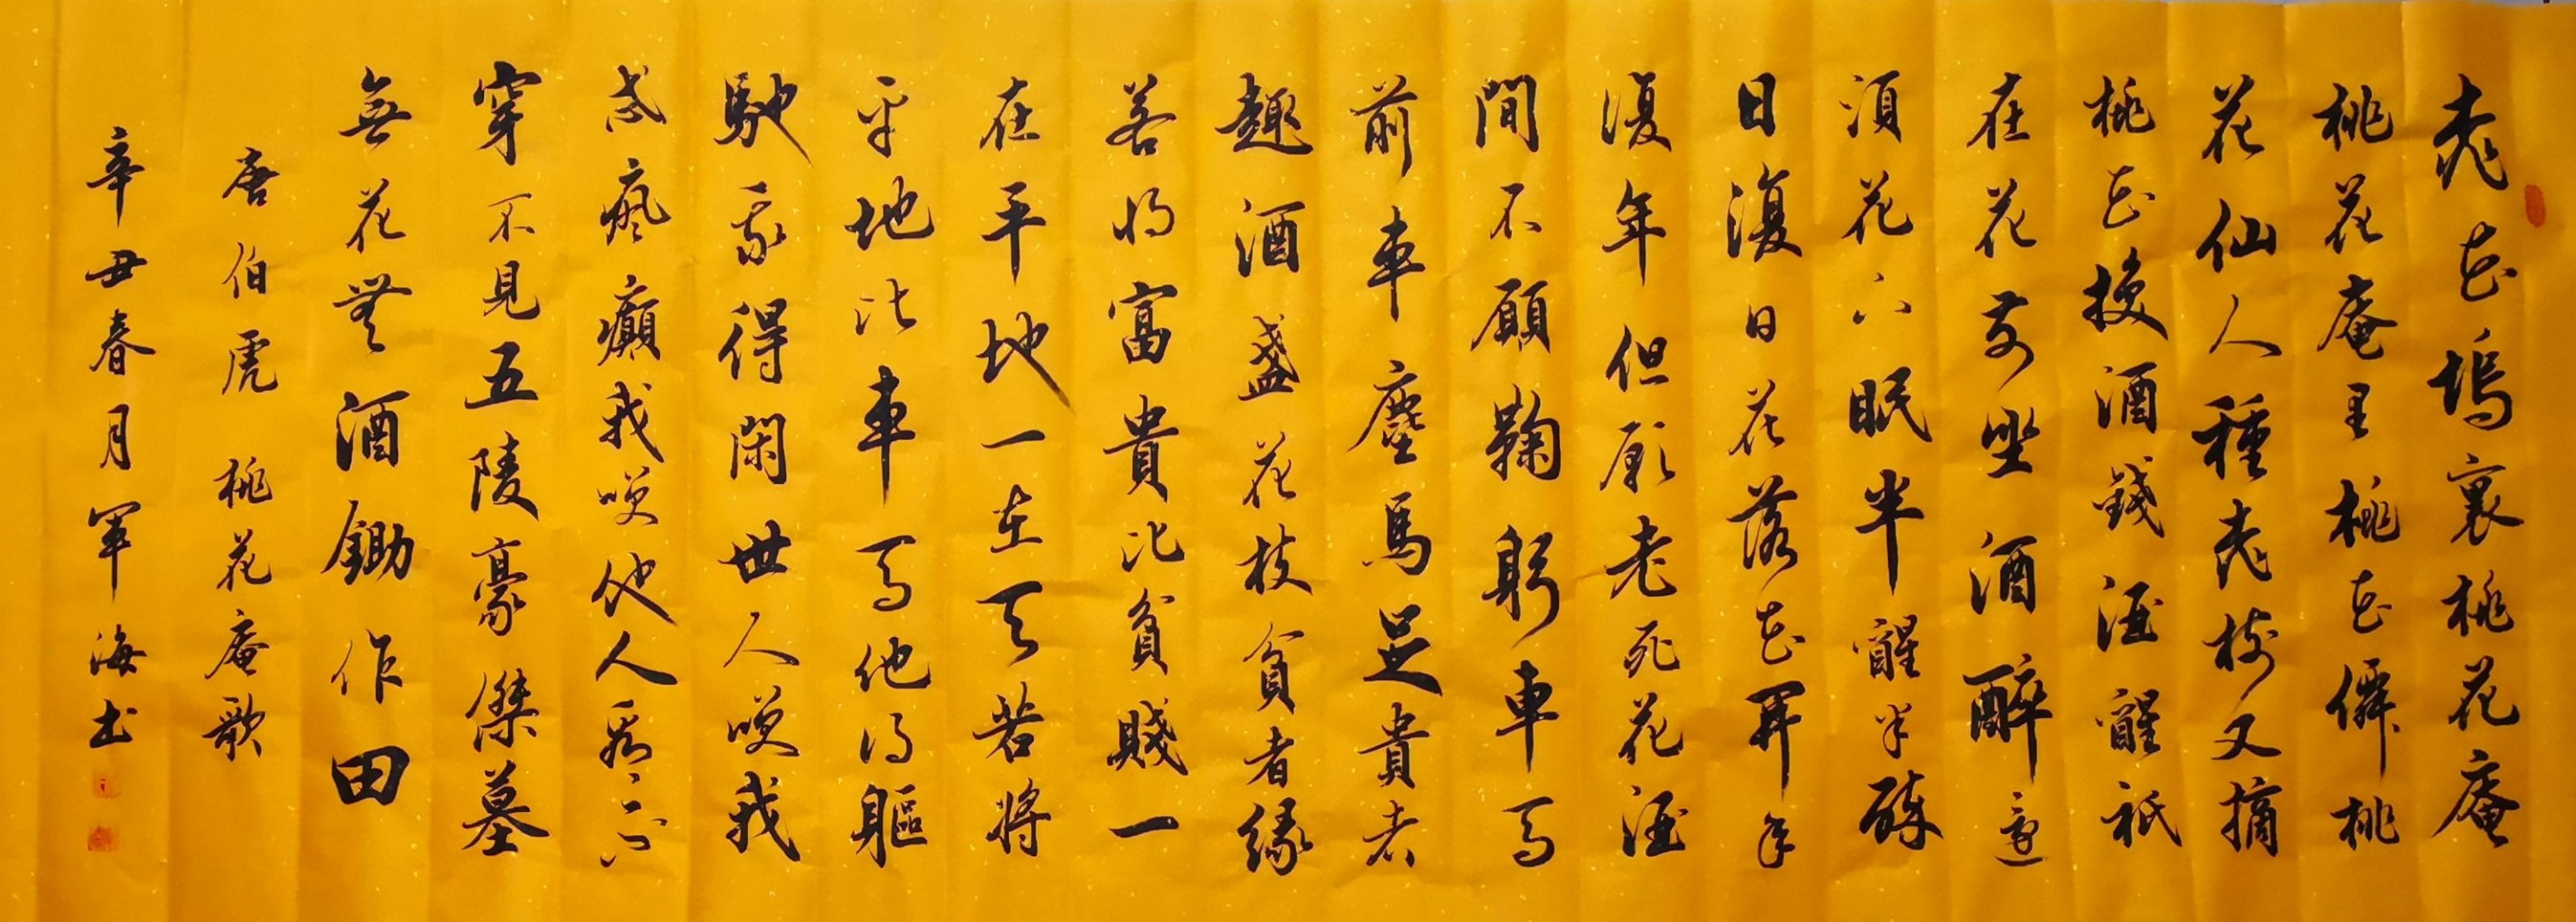 桃花塢裏桃花庵
桃花庵里桃花僊桃
花仙人種桃樹又摘
桃花換酒錢酒醒祇
在花前坐酒醉還
須花下眠半醒半醉
日復日花落花開年
復年但願老死花酒
間不願鞠躬車馬
前車塵馬足貴者
趣酒盞花枝貧者緣
若將富貴比貧賤一
在平地一在天若將
平地比車馬他得軀
馳我得閑世人笑我
忒瘋癲我笑他人看不
穿不見五陵豪傑墓
無花無酒鋤作田
唐伯虎 桃花庵歌
辛丑春月軍海书